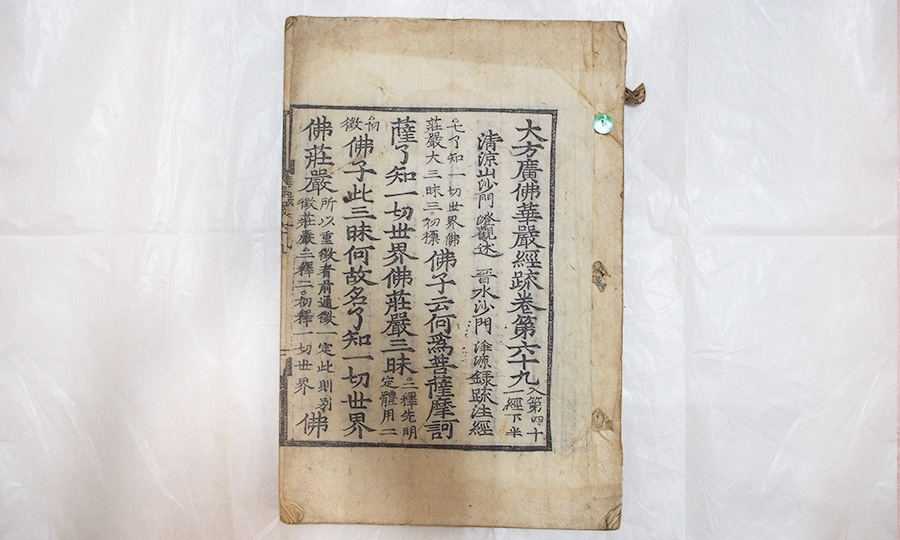 大方廣佛華嚴經疏卷第六十九入第四十
一經下半
清涼山沙門澄觀述 晉水沙門淨源錄疏注經
。七了知一切世界佛
莊嚴大三昧三。初標
佛子云何爲菩薩摩訶
薩了知一切世界佛莊嚴三昧。二釋先明
定體用二
徵
佛子此三昧何故名了知一切世界
佛莊嚴所以重徵者前通徵一定此則別
徵莊嚴。二釋二。初釋一切世界
佛